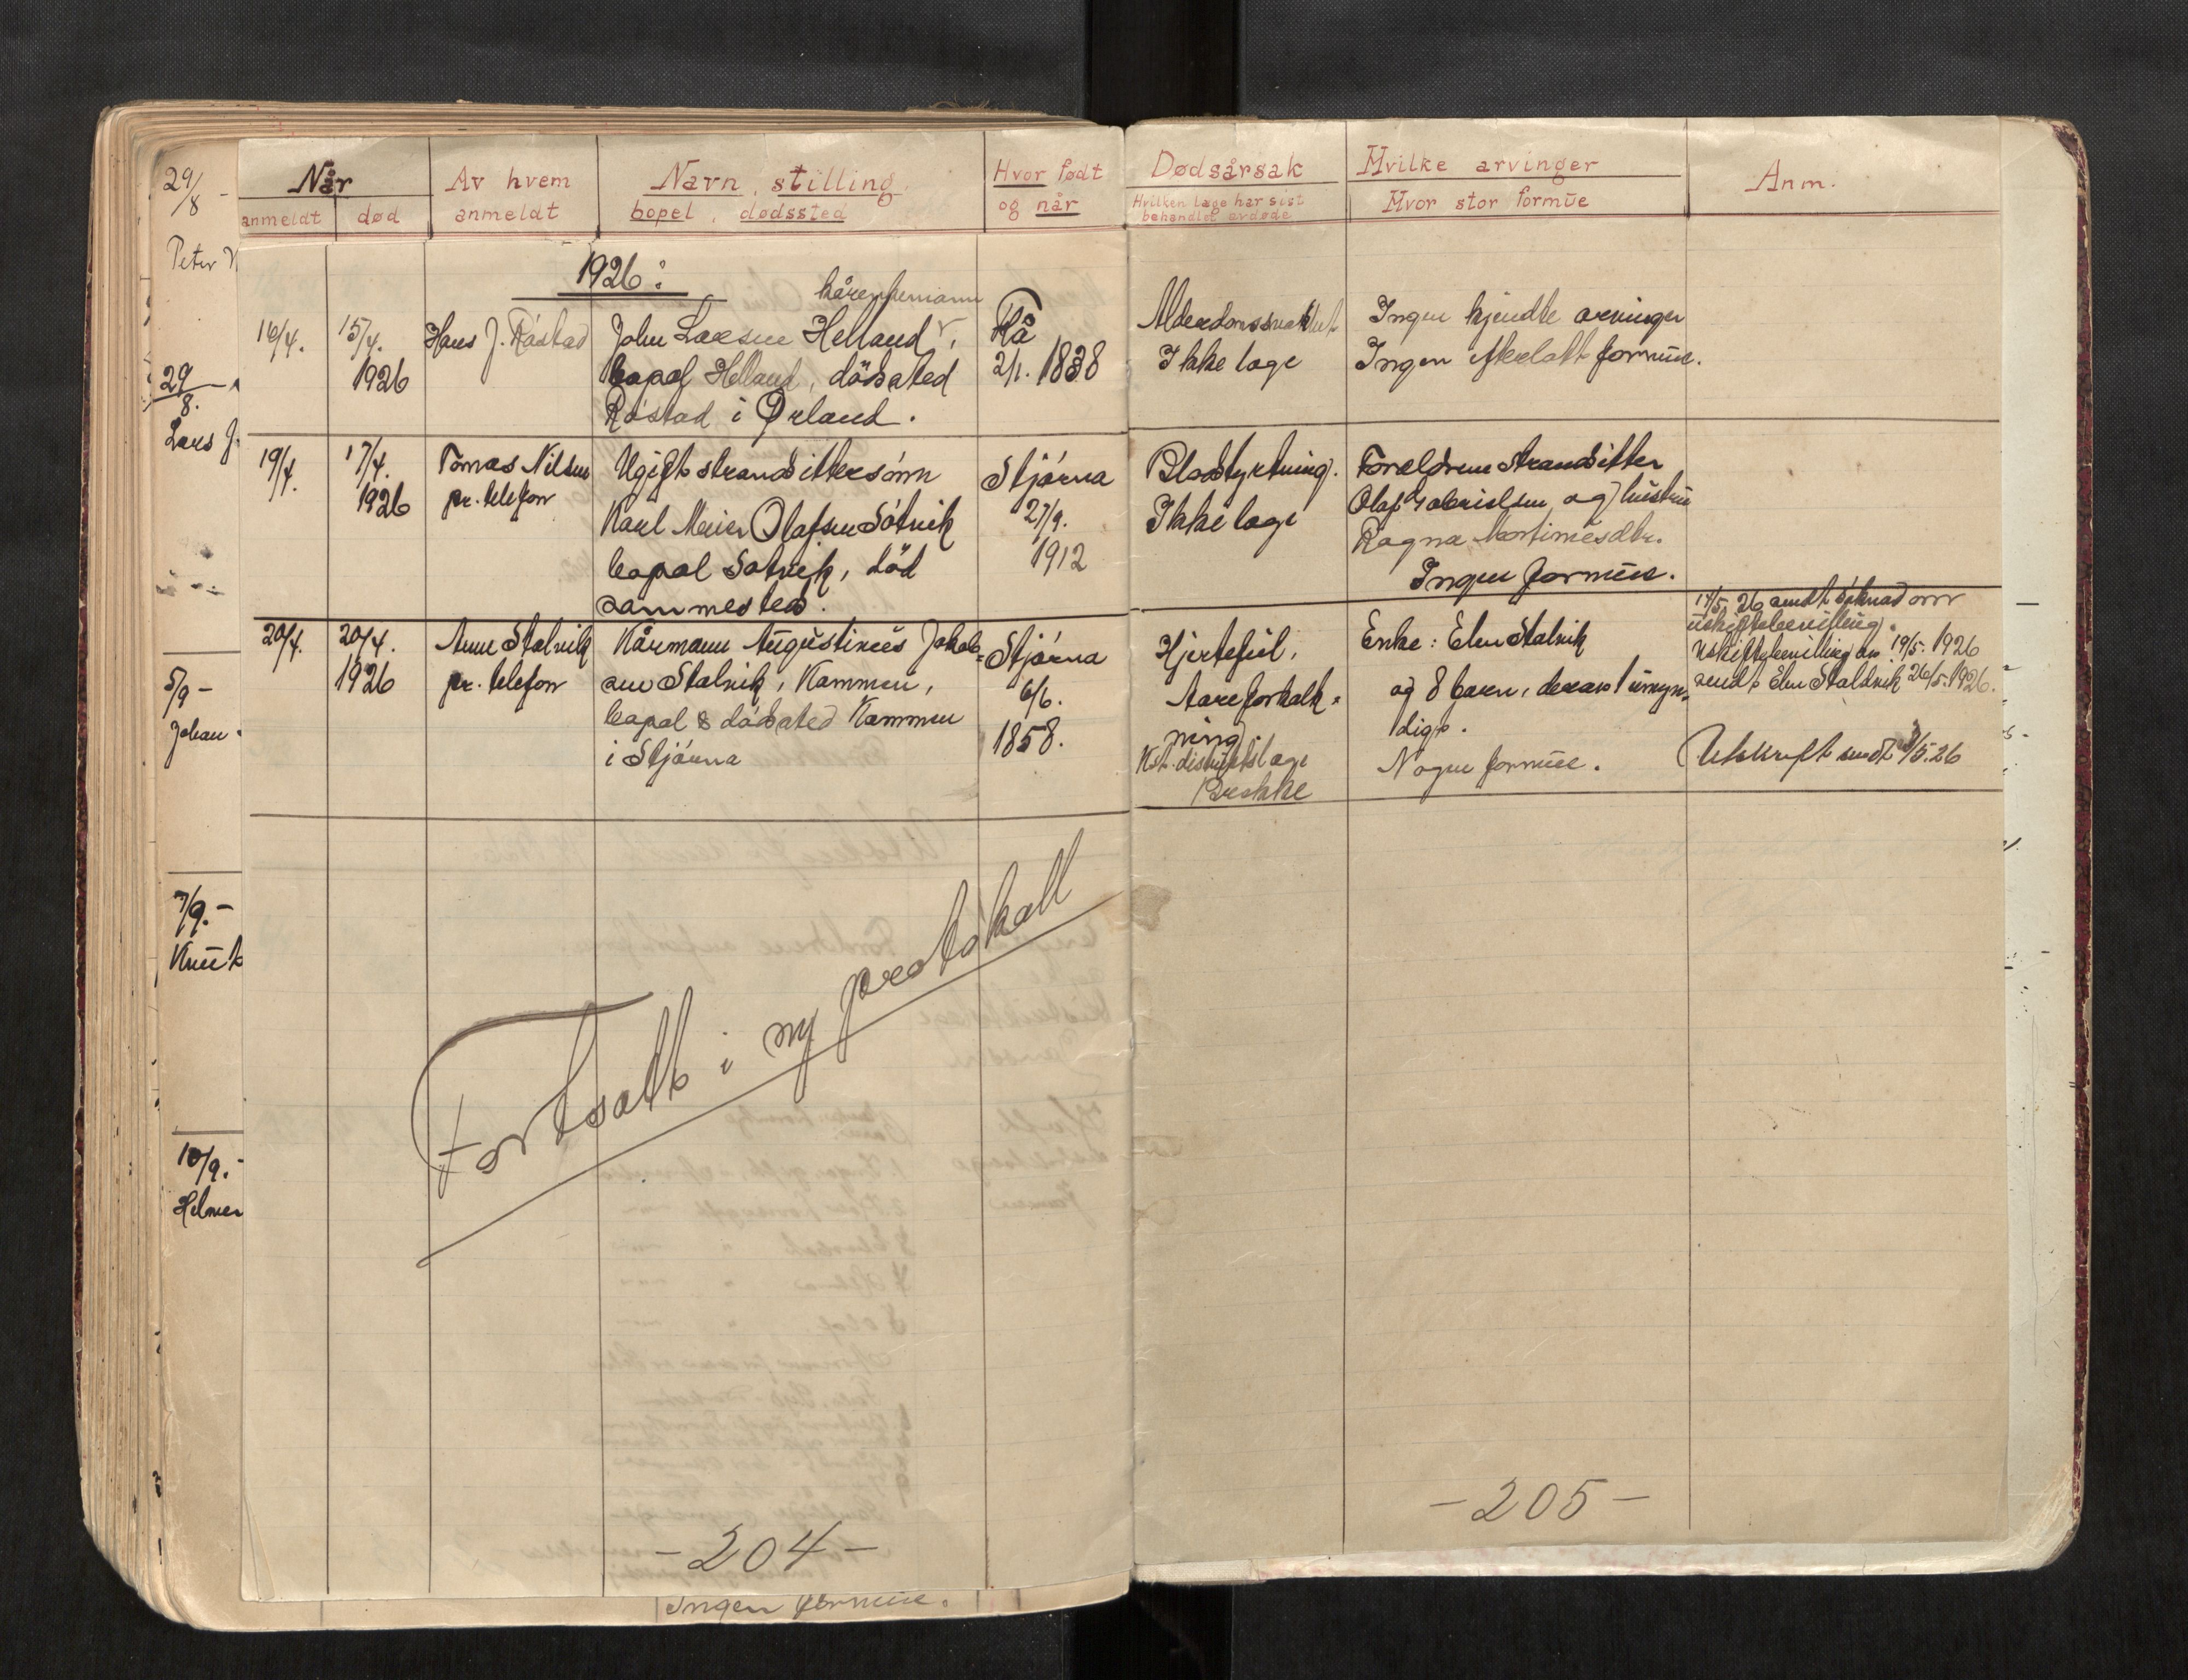 29/8 -
Peter
29/8.
Lars J.
5/9 -
Johan
7/9. -
Knut
10/9. -
Helmer
Når
anmeldt død
Av hvem
anmeldt
Navn, stilling,
bopel, dødssted
Hvor født
og når
1926:
kårenkemann
16/4. 15/4.
1926
Hans J. Råstad
John Larsen Helland,
bopæl Helland, dödssted
Råstad i Ørland.
Rå
2/1. 1838
19/4. 17/4.
1926
Tomas Nilsen
pr. telefon
Ugift strandsittersönn
Karl Meier Olafsen Sötvik
bopæl Sötvik, död
sammested.
Stjörna
27/9.
1912
20/4. 20/4.
1926
Anne Stalvik
pr. telefon
Kårmann Augustinus Jakob-
sen Stalvik, Kammen,
bopæl & dödssted Kammen
i Stjörna
Stjörna
6/6.
1858.
Fortsatt i ny protokoll
-204-
Ingen formue.
Dødsårsak
Hvilken læge har sist
behandlet avdøde
Hvilke arvinger
Hvor stor formue
Anm.
Alderdomssvakhet
Ikke læge
Ingen kjendte arvinger
Ingen efterlatt formue.
Blodstyrtning.
Ikke læge
Forældrene strandsitter
Olaf Gabrielsen og hustru
Ragna Mortinusdtr.
Ingen formue.
Hjertefeil,
Aareforkalk-
ning.
Kst. distriktslæge
Brekke
Enke: Elen Stalvik
og 8 barn, derav 1 umyn-
dig.
Nogen formue.
14/5. 26 sendt söknad om
uskiftebevilling.
Uskiftebevilling av 19/5. 1926
sendt Elen Staldvik 26/5. 1926.
Utskrift sendt /5.26
-205-